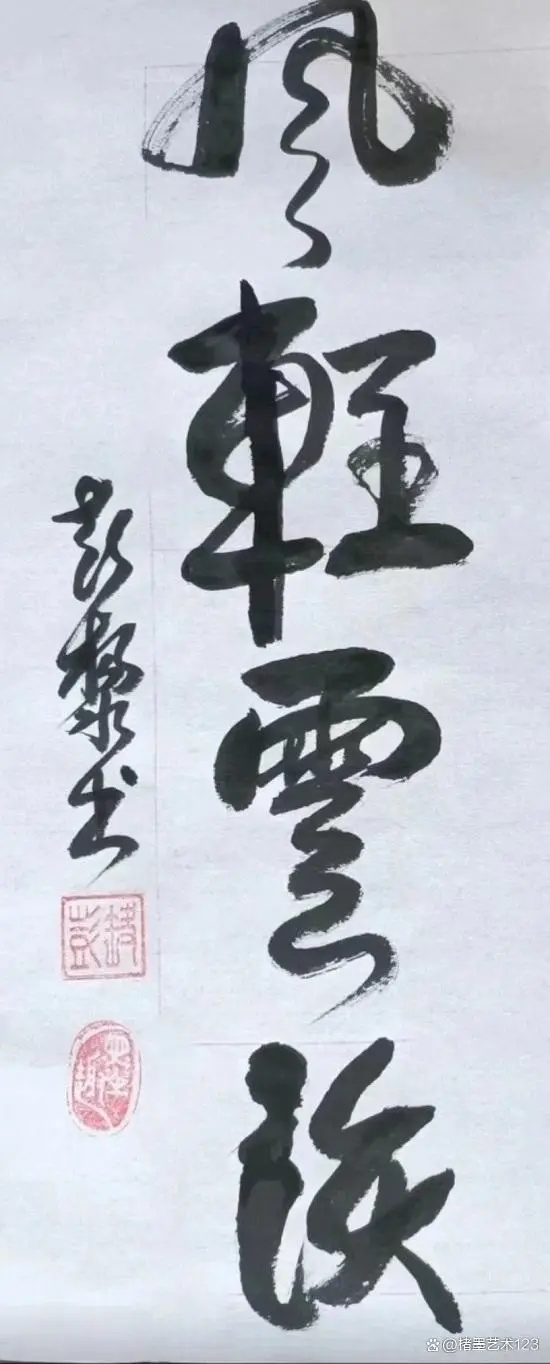 風輕雲淡
彭书
@楮墨艺术123